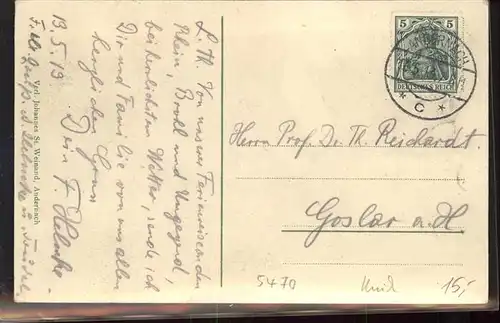 L. Th. Von unserer Ferienreise an den
Rhein, Brohl und Umgegend,
bei herrlichstem Wetter, sende ich
Dir und Familie von uns allen
herzlichen Gruss
Dein F. 
13.5.13.
Verl. Johannes St. Weinand, Andernach
5
5
DEUTSCHES REICH
ANDERNACH
* C *
Herrn Prof. Dr. Th. Reichardt.
Goslar a. H.
5470
15,-